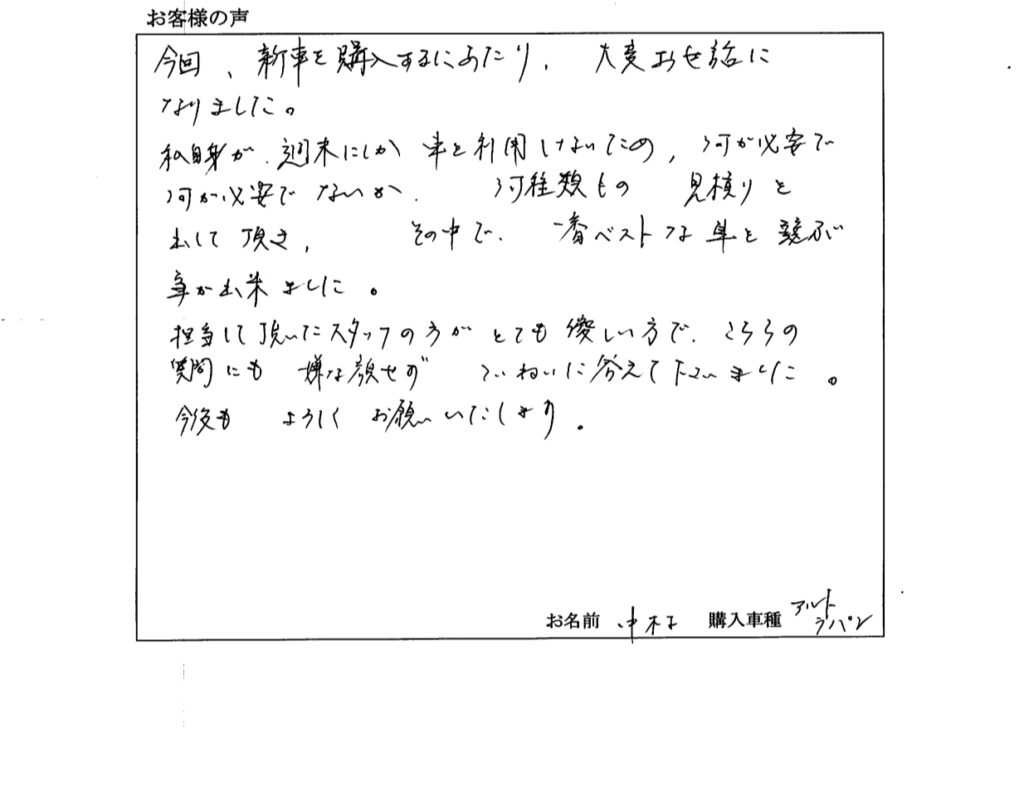 お客様の声
今回、新車を購入するにあたり、大変お世話に
なりました。
私自身が、週末にしか車を利用しないため、何が必要で
何が必要でないか、何種類もの見積りを
出して頂き、その中で、一番ベストな車を選ぶ
事が出来ました。
担当して頂いたスタッフの方がとても優しい方で、こちらの
質問にも嫌な顔せずていねいに答えて下さいました。
今後もよろしくお願いいたします。
お名前 中村 購入車種 アルト
ラパン